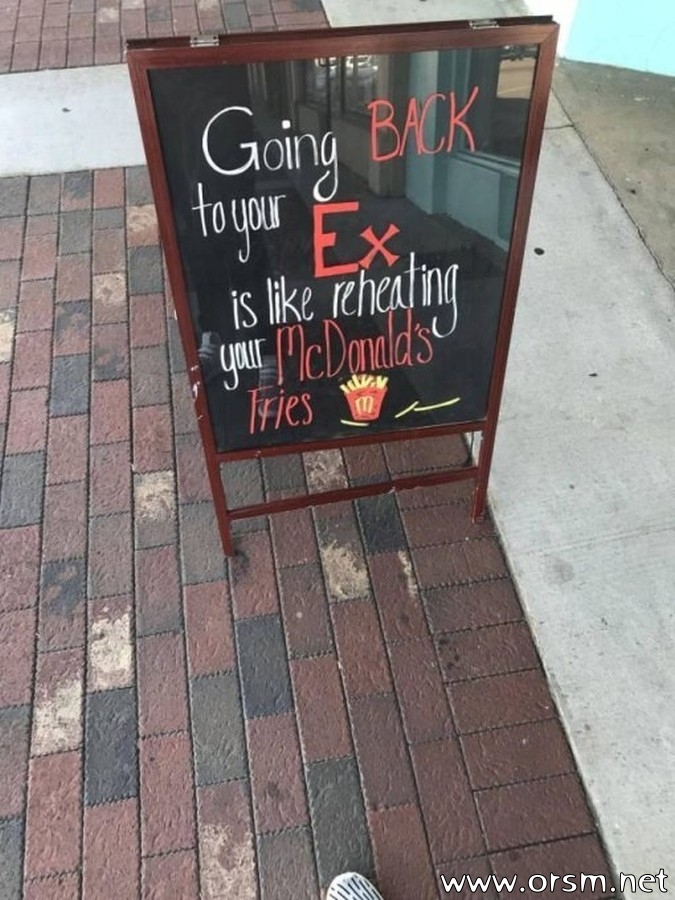 Going BACK
to your Ex
is like reheating
your McDonald's
Fries
M
www.orsm.net